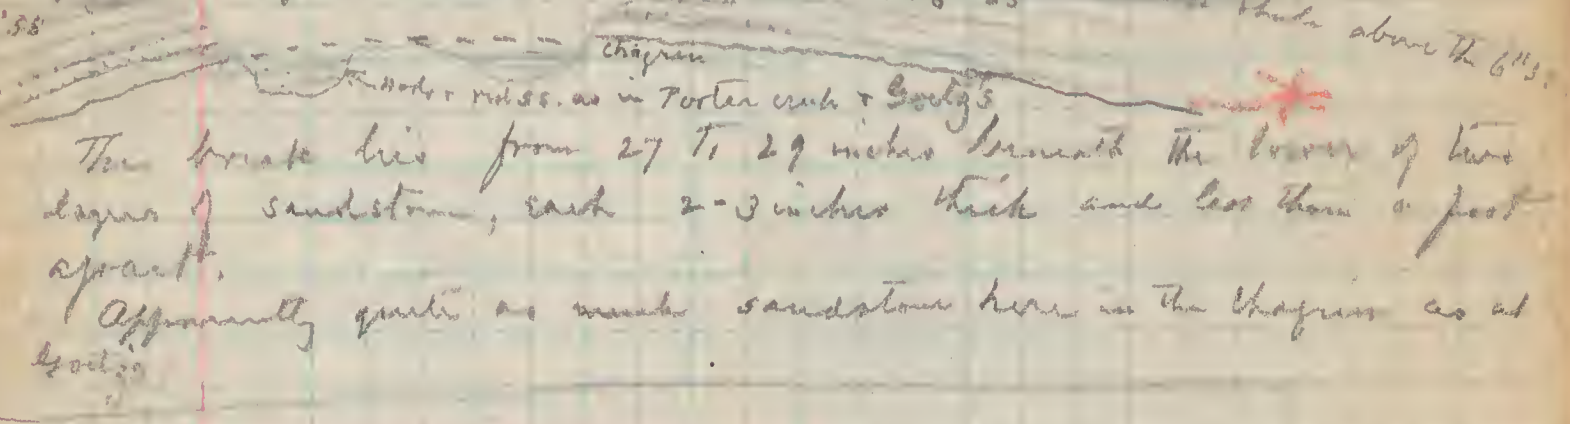 '55
shale above the 6" s.
Chagrin
+ red ss. as in Porter creek + Goetz's
The break lies from 27 to 29 inches beneath the lower of two
layers of sandstone, each 2-3 inches thick and less than a foot
apart.
Apparently quite as much sandstone here in the Chagrin as at
Goetz's